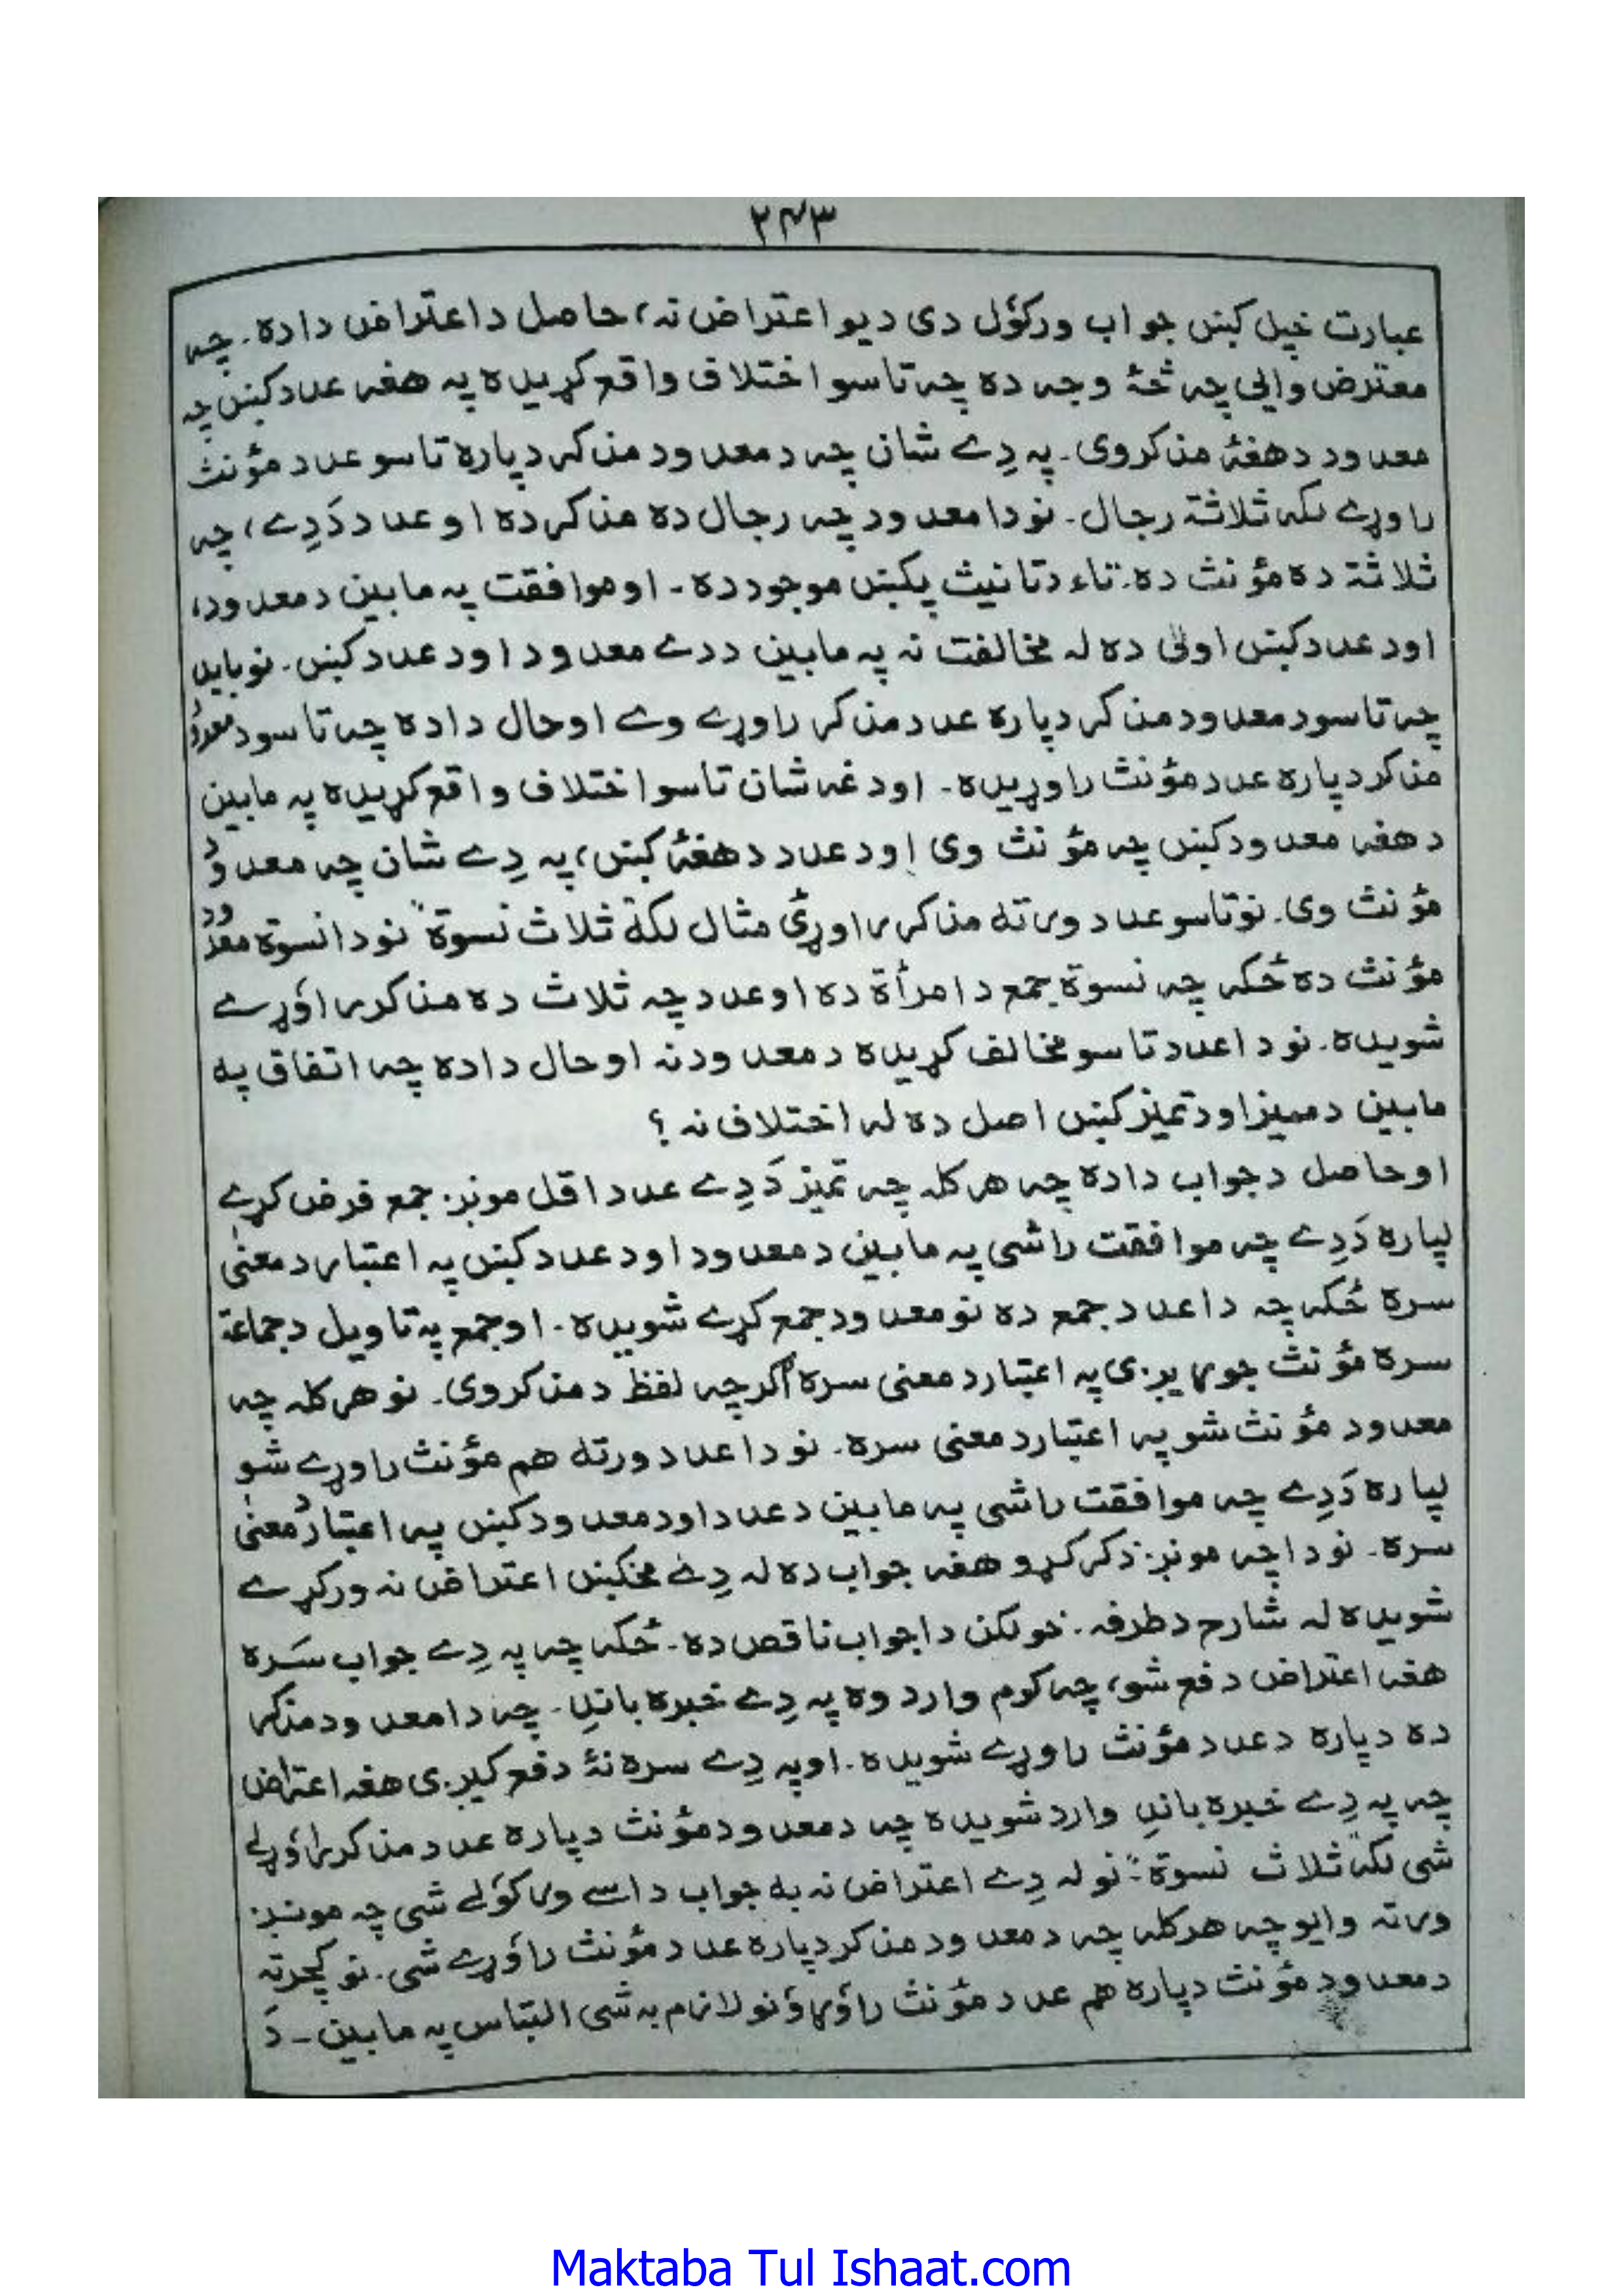 ۲۴۳
عبارت خپل کښ جواب ورکؤل دی د یو اعتراض نه، حاصل د اعتراض دا ده۔ چه
معترض وائی چه څۀ وجه ده چه تاسو اختلاف واقع کړیده په هغه عدد کښ چه
معدود د هغۀ مذکر وی۔ په دِے شان چه د معدود مذکر دپاره تاسو عدد مؤنث
راوړے لکه ثلاثة رجال۔ نو دا معدود چه رجال ده مذکر ده او عدد دَدِے، چه
ثلاثة ده مؤنث ده۔ تاء د تانیث پکښ موجود ده۔ او موافقت په مابین د معدود،
او د عدد کښ اولیٰ ده له مخالفت نه په مابین ددے معدود او د عدد کښ۔ نو باید
چه تاسو د معدود مذکر دپاره عدد مذکر راوړے وے او حال دا ده چه تاسو د معدود
مذکر دپاره عدد مؤنث راوړیده۔ او دغه شان تاسو اختلاف واقع کړیده په مابین
د هغه معدود کښ چه مؤنث وی او د عدد د هغۀ کښ، په دِے شان چه معدود
مؤنث وی۔ نو تاسو عدد ورته مذکر راوړئ مثال لکه ثلاث نسوة نو دا نسوة معدود
مؤنث ده ځکه چه نسوة جمع د امرأة ده او عدد چه ثلاث ده مذکر راؤړے
شویده۔ نو دا عدد تاسو مخالف کړیده د معدود نه او حال دا ده چه اتفاق په
مابین د ممیز او د تمیز کښ اصل ده له اختلاف نه ؟
او حاصل د جواب دا ده چه هر کله چه تمیز دَدِے عدد اقل مونږ جمع فرض کړے
لپاره دَدِے چه موافقت راشی په مابین د معدود او د عدد کښ په اعتبار د معنیٰ
سره ځکه چه دا عدد جمع ده نو معدود جمع کړے شویده۔ او جمع په تاویل د جماعة
سره مؤنث جوړیږی په اعتبار د معنی سره اگرچه لفظ د مذکر وی۔ نو هر کله چه
معدود مؤنث شو په اعتبار د معنی سره۔ نو دا عدد ورته هم مؤنث راوړے شو
لپاره دَدِے چه موافقت راشی په مابین د عدد او د معدود کښ په اعتبار د معنیٰ
سره۔ نو دا چه مونږ ذکر کړو هغه جواب ده له دِے مخکښ اعتراض نه ورکړے
شویده له شارح د طرفه۔ خو لکن دا جواب ناقص ده۔ ځکه چه په دِے جواب سَره
هغه اعتراض دفع شو، چه کوم وارد وه په دِے خبره باندِ۔ چه دا معدود مذکر
ده دپاره د عدد مؤنث راوړے شویده۔ او په دِے سره نۀ دفع کیږی هغه اعتراض
چه په دِے خبره باندِ وارد شویده چه د معدود مؤنث دپاره عدد مذکر راؤړلے
شی لکه ثلاث نسوة۔ نو له دِے اعتراض نه به جواب داسے ورکؤلے شی چه مونږ
ورته وایو چه هر کله چه د معدود مذکر دپاره عدد مؤنث راؤړے شی۔ نو کچرته
د معدود مؤنث دپاره هم عدد مؤنث راؤړؤ نو لازم به شی التباس په مابین۔ دَ
Maktaba Tul Ishaat.com